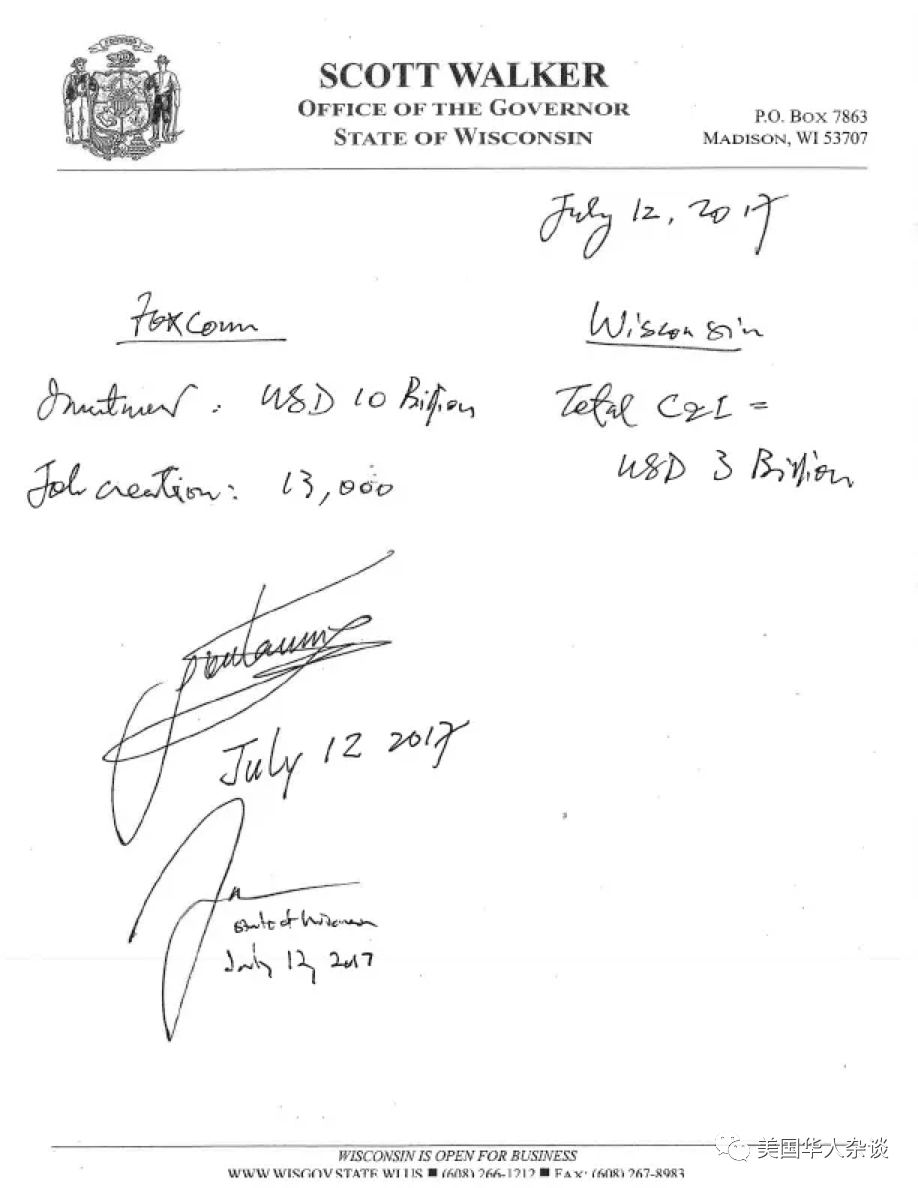 FORWARD
SCOTT WALKER
OFFICE OF THE GOVERNOR
STATE OF WISCONSIN
P.O. BOX 7863
MADISON, WI 53707
July 12, 2017
Foxconn
Investment : USD 10 Billion
Job creation : 13,000
Wisconsin
Total C&I =
USD 3 Billion
July 12 2017
State of Wisconsin
July 12, 2017
WISCONSIN IS OPEN FOR BUSINESS
WWW.WISGOV.STATE.WI.US ■ (608) 266-1212 ■ FAX: (608) 267-8983
美国华人杂谈